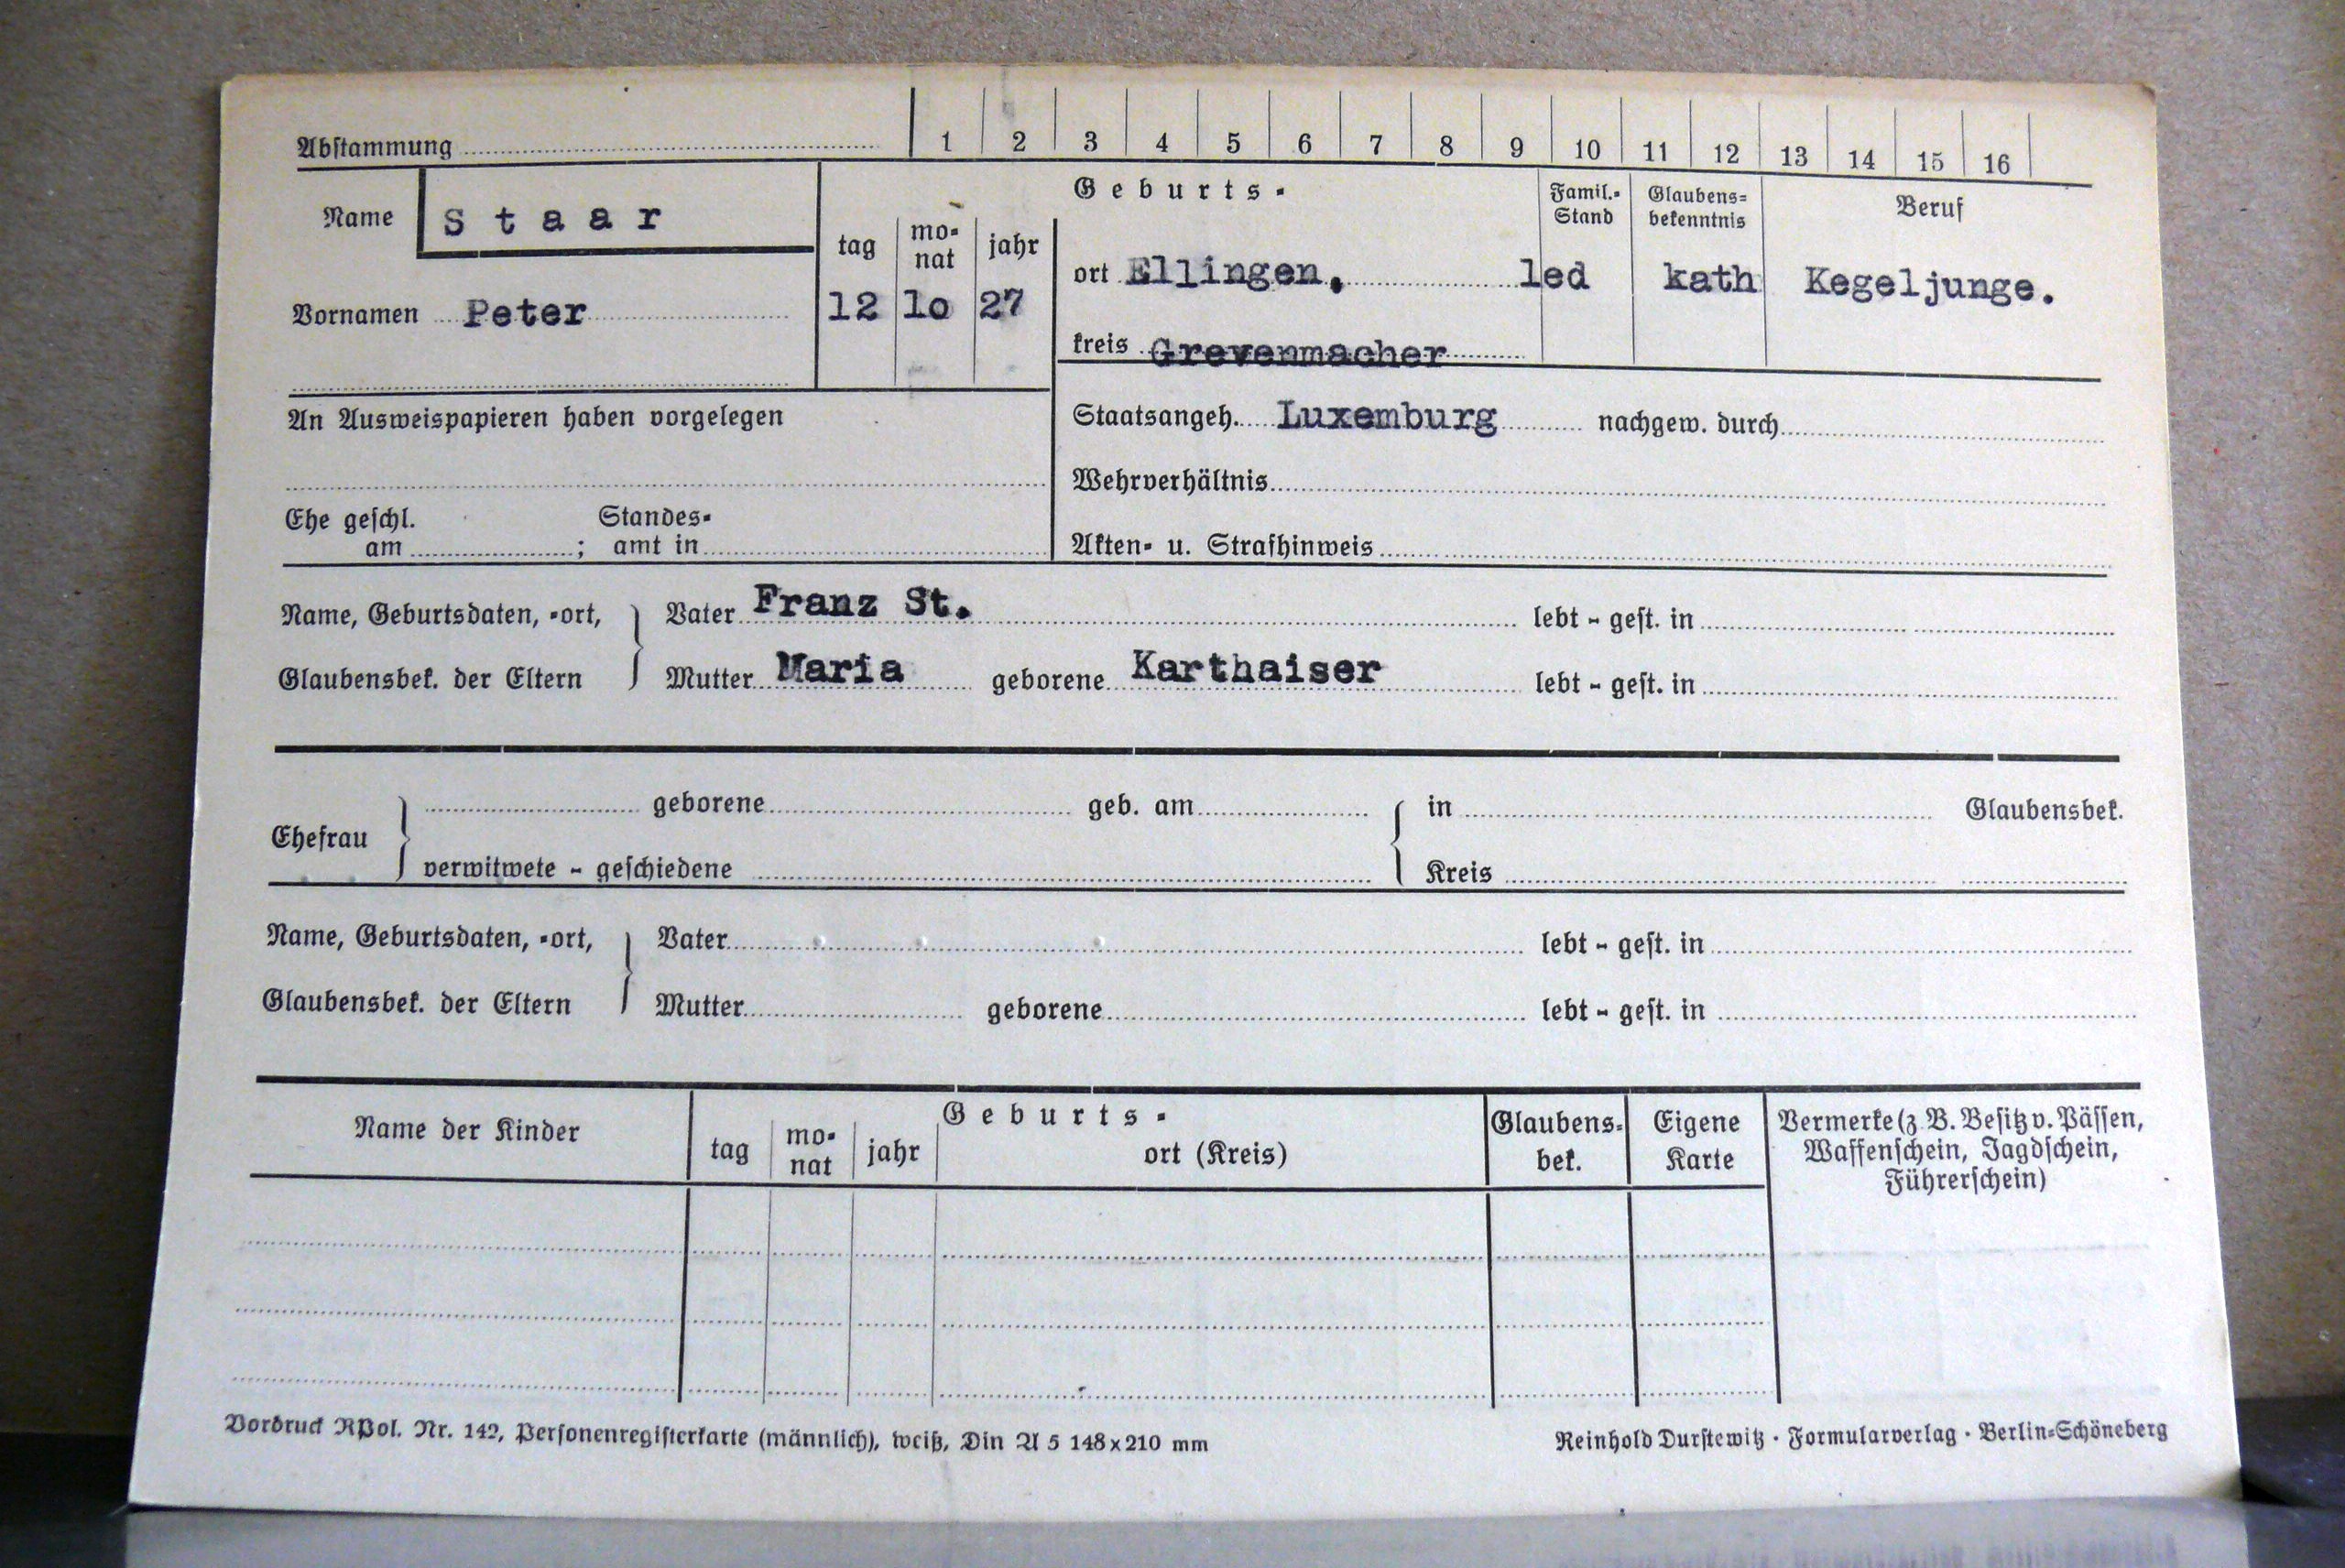 Abstammung 1 2 3 4 5 6 7 8 9 10 11 12 13 14 15 16
Name Staar
Geburts-
Famil.-Stand
Glaubens-bekenntnis
Beruf
tag mo-nat jahr
ort Ellingen. led kath Kegeljunge.
Vornamen Peter 12 lo 27
kreis Grevenmacher
An Ausweispapieren haben vorgelegen
Staatsangeh. Luxemburg nachgew. durch
Wehrverhältnis
Ehe geschl. Standes-
am ; amt in
Akten- u. Strafhinweis
Name, Geburtsdaten, -ort, Vater Franz St. lebt - gest. in
Glaubensbek. der Eltern Mutter Maria geborene Karthaiser lebt - gest. in
geborene geb. am in Glaubensbek.
Ehefrau
verwitwete - geschiedene Kreis
Name, Geburtsdaten, -ort, Vater lebt - gest. in
Glaubensbek. der Eltern Mutter geborene lebt - gest. in
Name der Kinder
Geburts-
tag mo-nat jahr ort (Kreis)
Glaubens-bek.
Eigene Karte
Vermerke (z. B. Besitz v. Pässen,
Waffenschein, Jagdschein,
Führerschein)
Vordruck RPol. Nr. 142, Personenregisterkarte (männlich), weiß, Din A 5 148x210 mm
Reinhold Durstewitz · Formularverlag · Berlin-Schöneberg